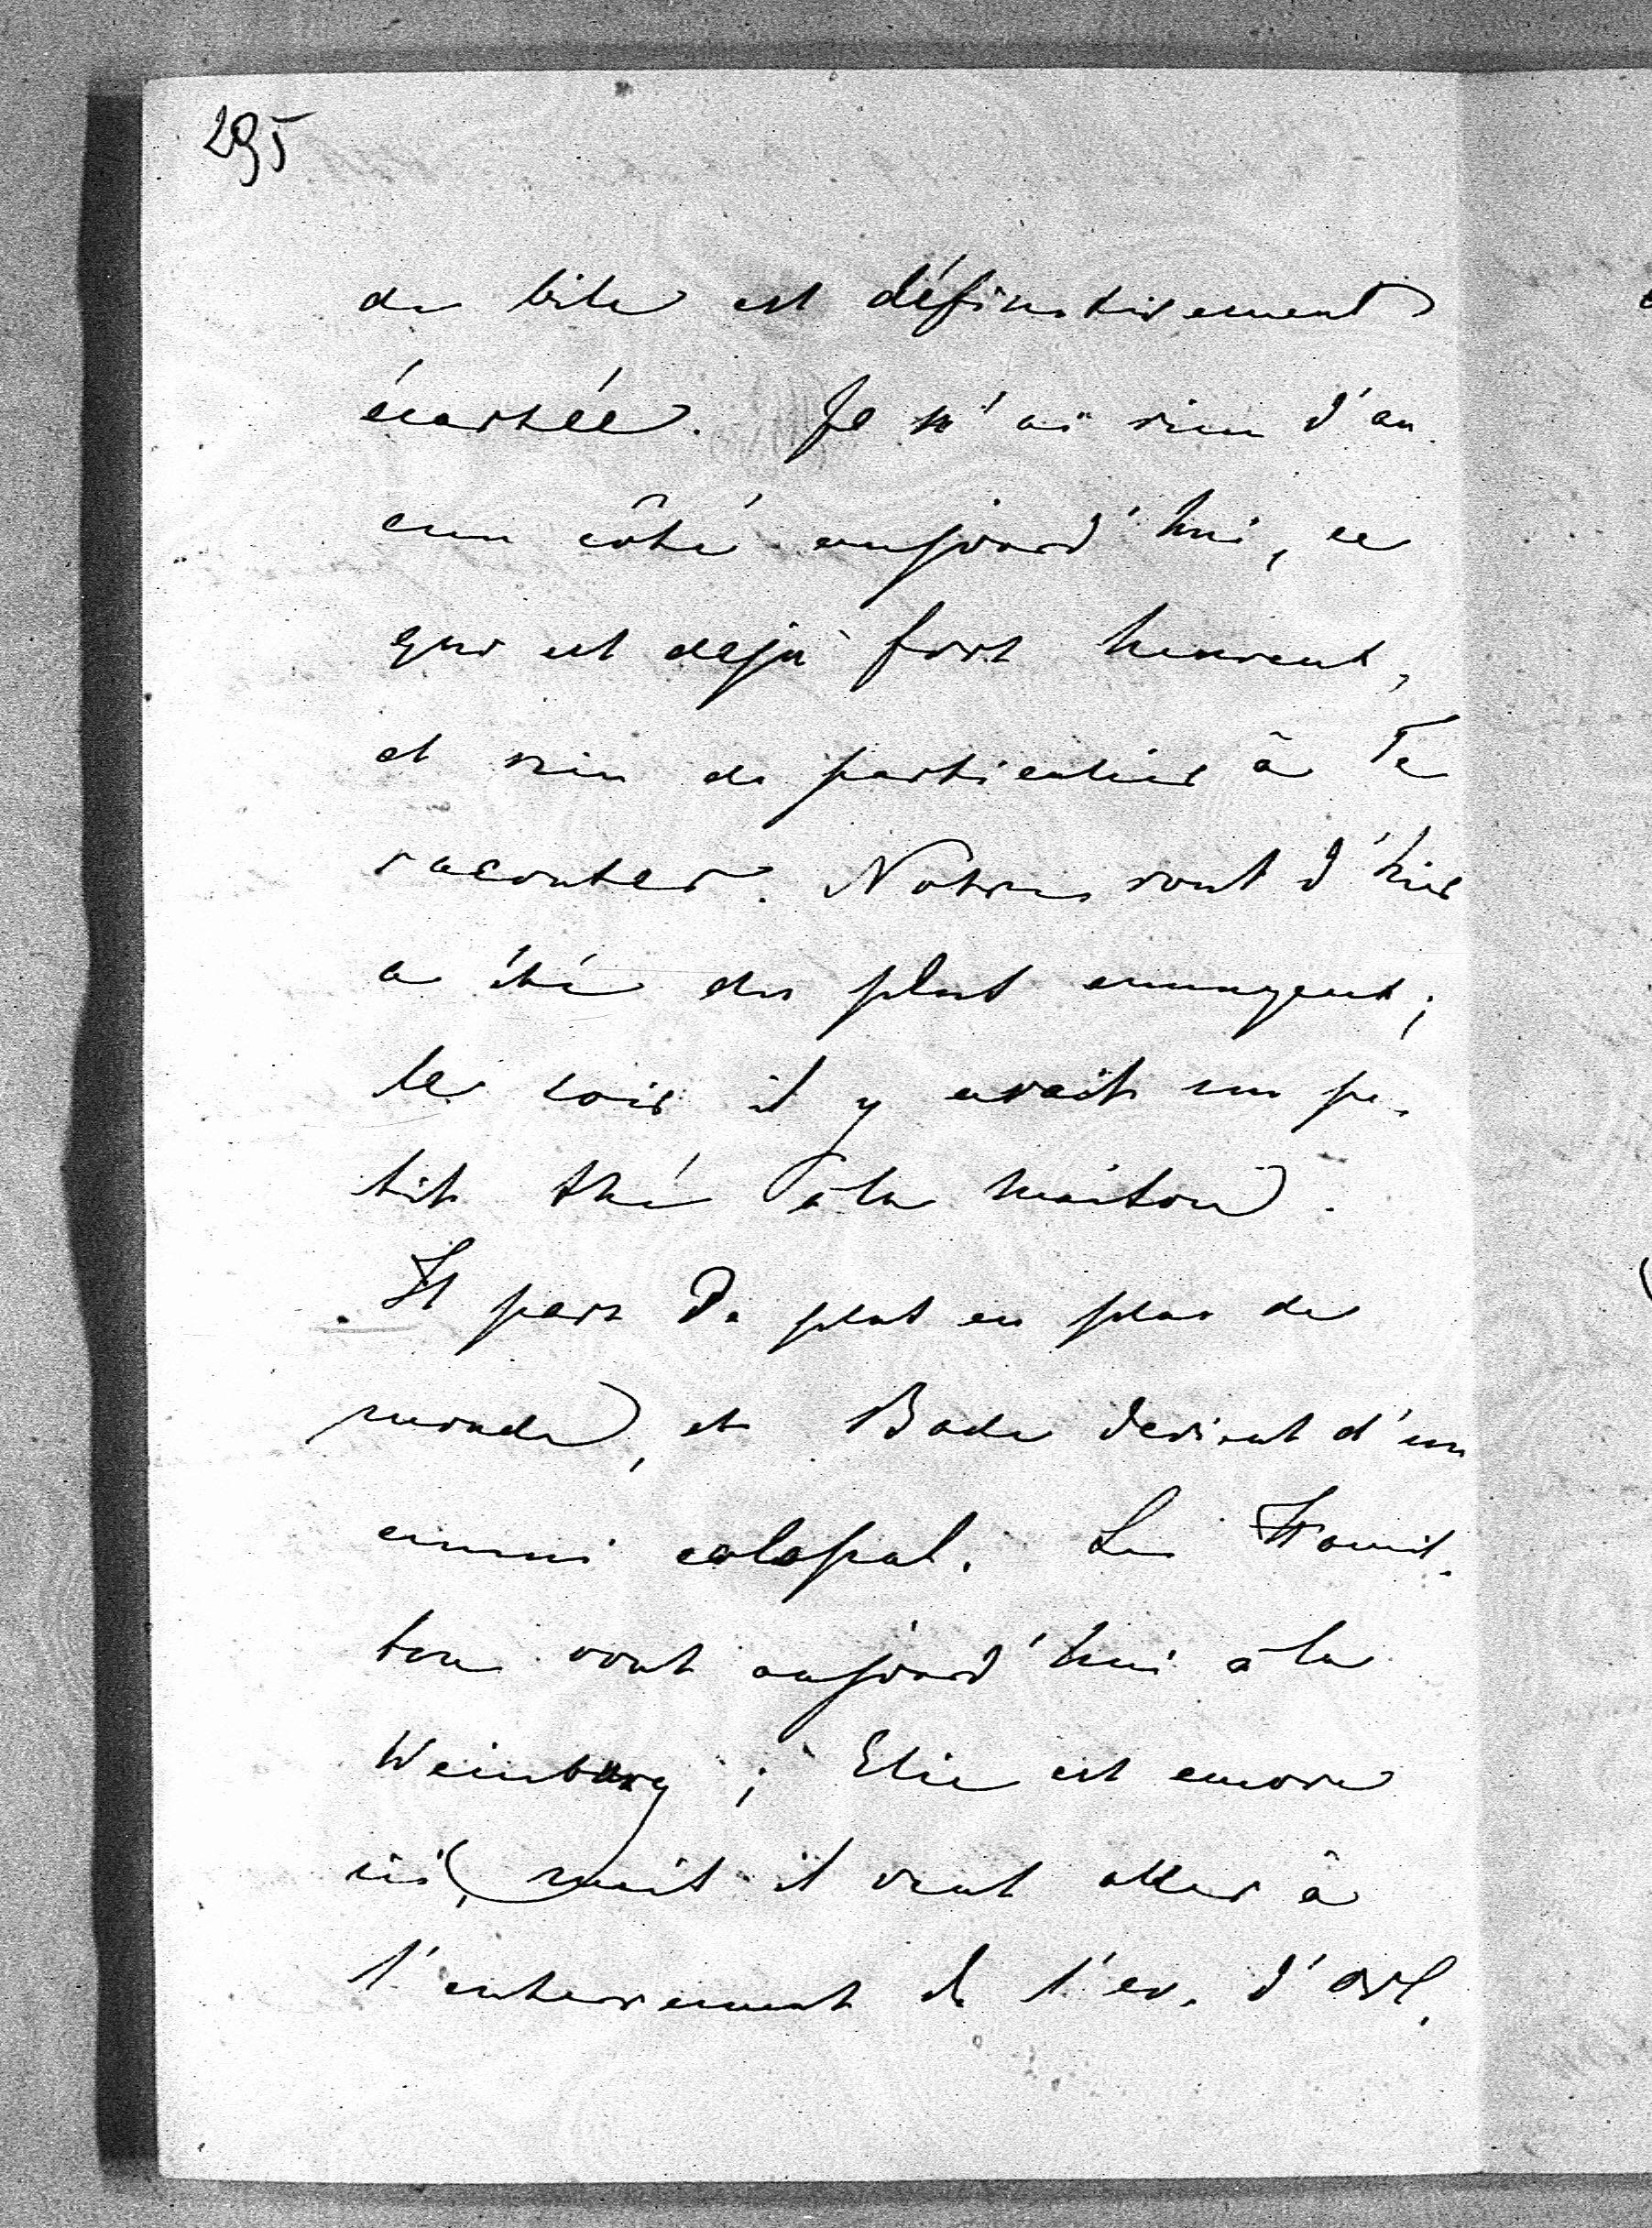 295
de bile est définitivement
écartée. Je n'ai rien d'au
cun côté aujourd'hui, ce
qui est déjà fort heureux,
et rien de particulier à Te
raconter. Notre rout d'hier
a été des plus ennuyeux;
le soir il y avait un pe-
tit thé à la maison.
Il part de plus en plus de
monde, et Bade devient d'un
ennui colossal. Les Hamil-
ton vont aujourd'hui à la
Weinburg; Elie est encore
ici, mais il veut aller à
l'enterrement de l'ev. d'Orl.